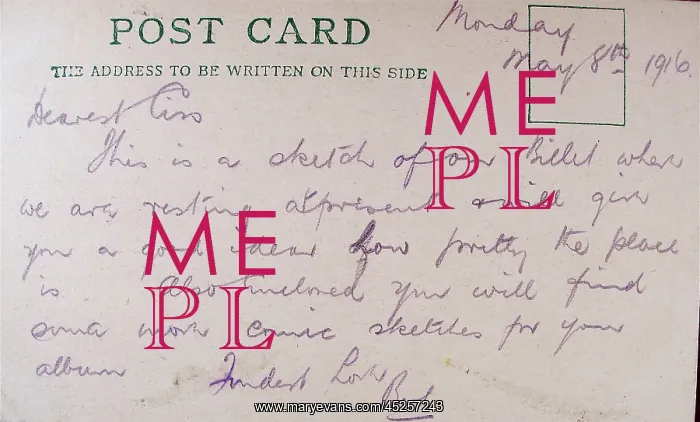 POST CARD
THE ADDRESS TO BE WRITTEN ON THIS SIDE
Monday
May 8th 1916.
Dearest Ciss
This is a sketch of our Billet where
we are resting at present & will give
you a good idear how pretty the place
is. Also Encloned you will find
some more comic sketches for your
album Fondest Love
Bert
ME
PL
ME
PL
www.maryevans.com/45257243